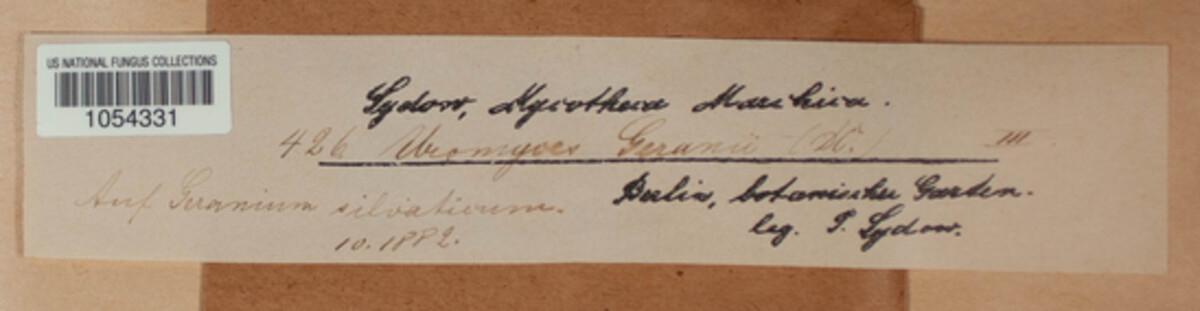 US NATIONAL FUNGUS COLLECTIONS
1054331
Sydow, Mycotheca Marchica.
426 Uromyces Geranii (DC.) III
Auf Geranium silvaticum.
10.1882.
Berlin, botanischer Garten.
leg. P. Sydow.